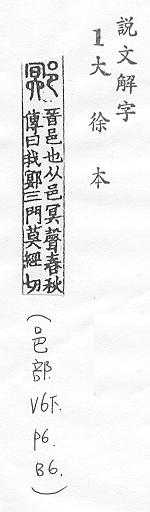 説文解字
1大徐本
鄍
晉邑也从邑冥聲春秋
傳曰伐鄍三門莫經切
(邑部. V6下. P6. B6.)